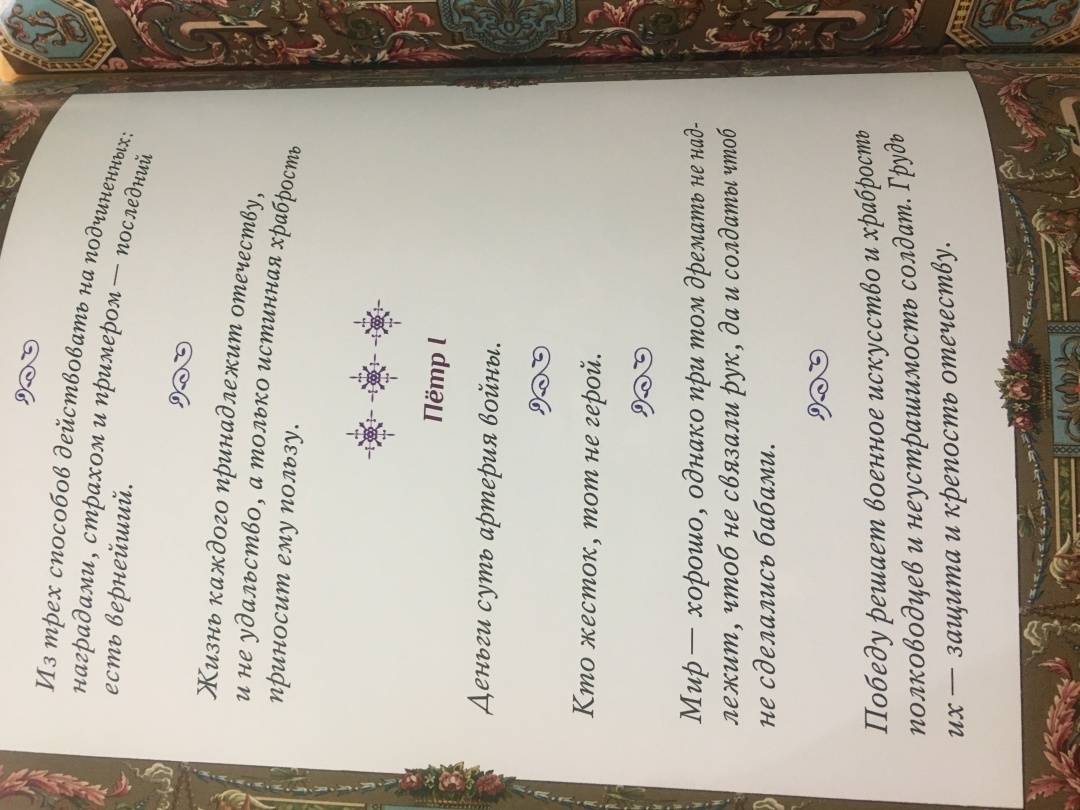 Из трех способов действовать на подчиненных:
наградами, страхом и примером — последний
есть вернейший.
Жизнь каждого принадлежит отечеству,
и не удальство, а только истинная храбрость
приносит ему пользу.
Пётр I
Деньги суть артерия войны.
Кто жесток, тот не герой.
Мир — хорошо, однако при том дремать не над-
лежит, чтоб не связали рук, да и солдаты чтоб
не сделались бабами.
Победу решает военное искусство и храбрость
полководцев и неустрашимость солдат. Грудь
их — защита и крепость отечеству.